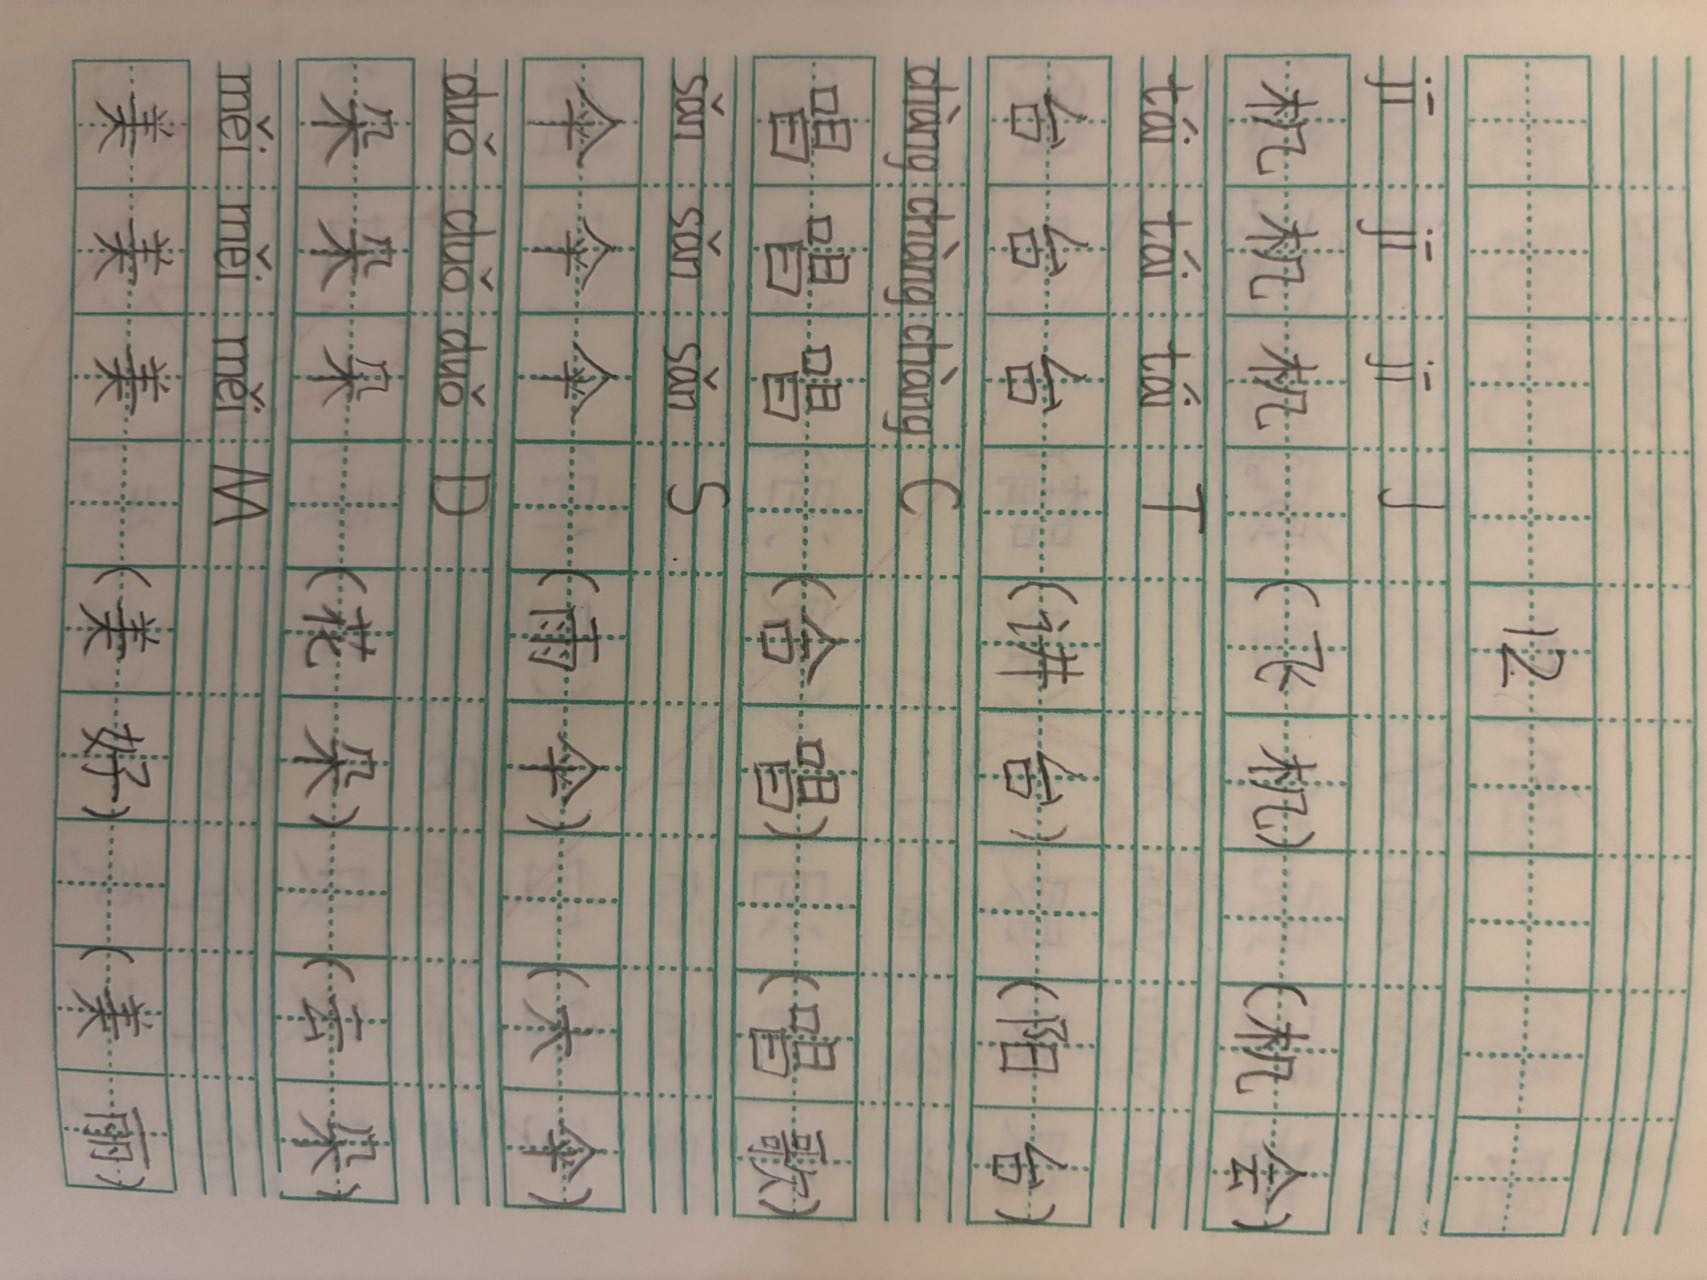 12
jī jī jī J
机机机 (飞机) (机会)
tái tái tái T
台台台 (讲台) (阳台)
chàng chàng chàng C
唱唱唱 (合唱) (唱歌)
sǎn sǎn sǎn S
伞伞伞 (雨伞) (大伞)
duǒ duǒ duǒ D
朵朵朵 (花朵) (云朵)
měi měi měi M
美美美 (美好) (美丽)